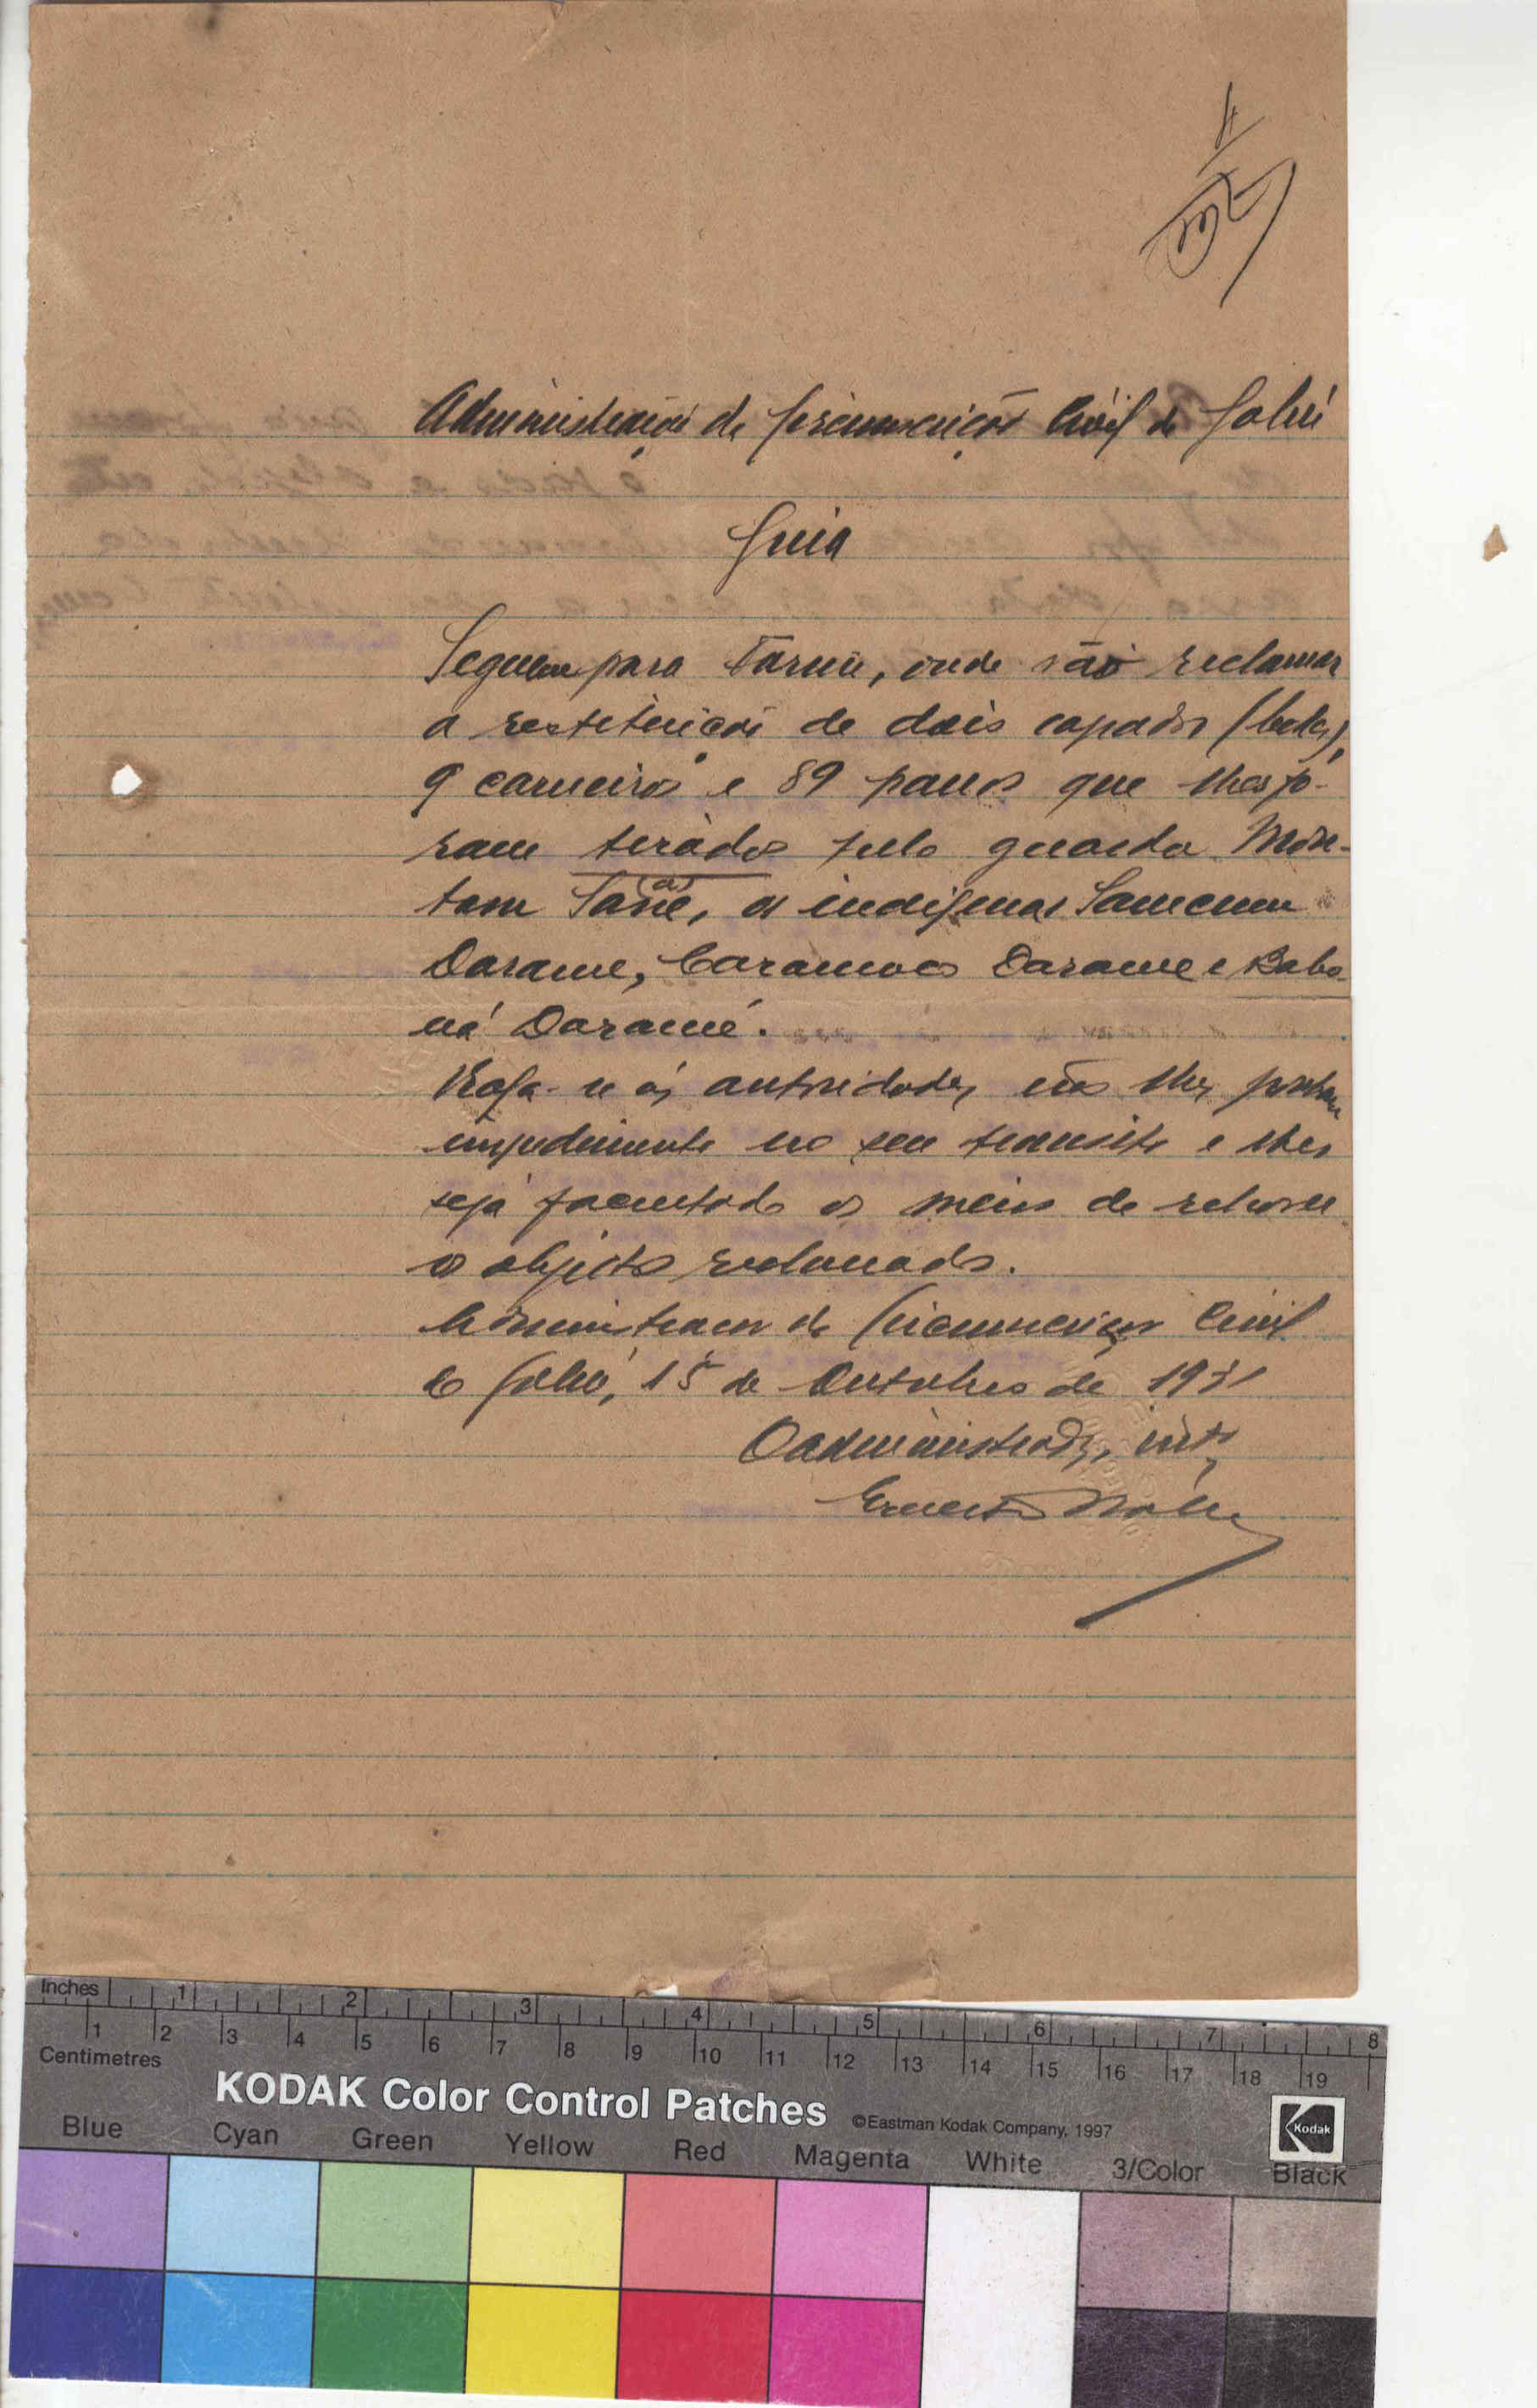 Administração da Circunscrição Civil de Gabú
Guia
Seguem para Farim, onde vão reclamar
a restituição de dois capados (bodes),
9 carneiros e 89 panos que lhes fo-
ram tirados pelo guarda Mon-
tam Sané, os indigenas
Darame, Caramoco Darame e Babo-
ná Daramé.
Roga-se ás autoridades não lhes ponham
impedimento no seu transito e lhes
seja facultado os meios de rehaver
o objecto reclamado.
Administração da Circunscrição Civil
de Gabú, 15 de Outubro de 1931
O administrador, intº
Ernesto
Inches 1 2 3 4 5 6 7 8
1 2 3 4 5 6 7 8 9 10 11 12 13 14 15 16 17 18 19
Centimetres
KODAK Color Control Patches ©Eastman Kodak Company, 1997 Kodak
Blue Cyan Green Yellow Red Magenta White 3/Color Black